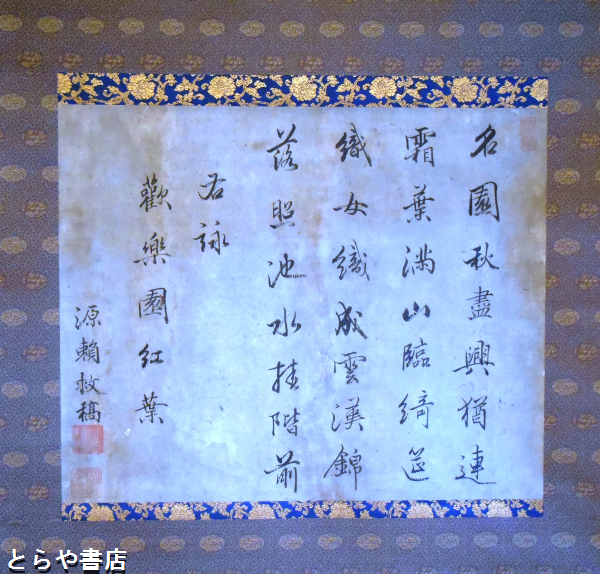 名園秋盡興猶連
霜葉満山臨綺筵
織女織成雲漢錦
落照池水挂階前
右詠
歡樂園紅葉
源頼救稿
とらや書店